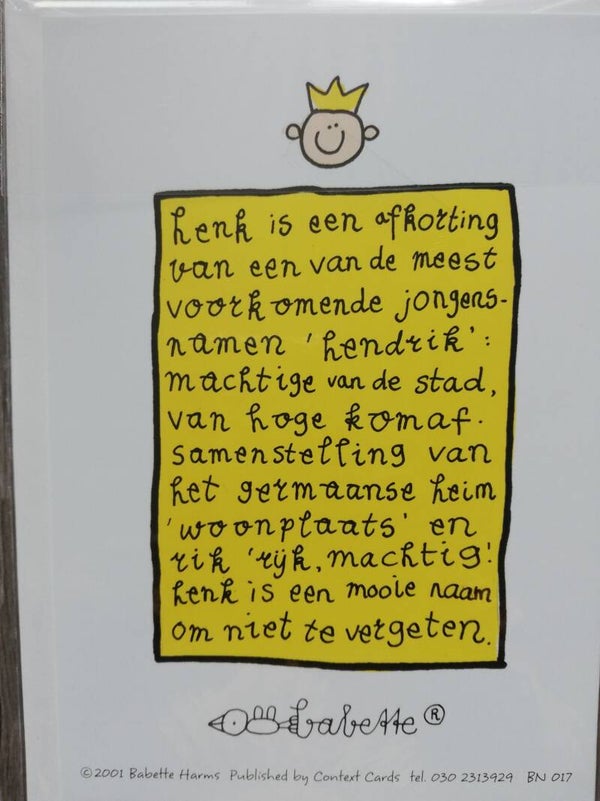 henk is een afkorting
van een van de meest
voorkomende jongens-
namen 'hendrik':
machtige van de stad,
van hoge komaf.
samenstelling van
het germaanse heim
'woonplaats' en
rik 'rijk, machtig'.
henk is een mooie naam
om niet te vergeten.
babette ®
©2001 Babette Harms Published by Context Cards tel. 030 2313929 BN 017